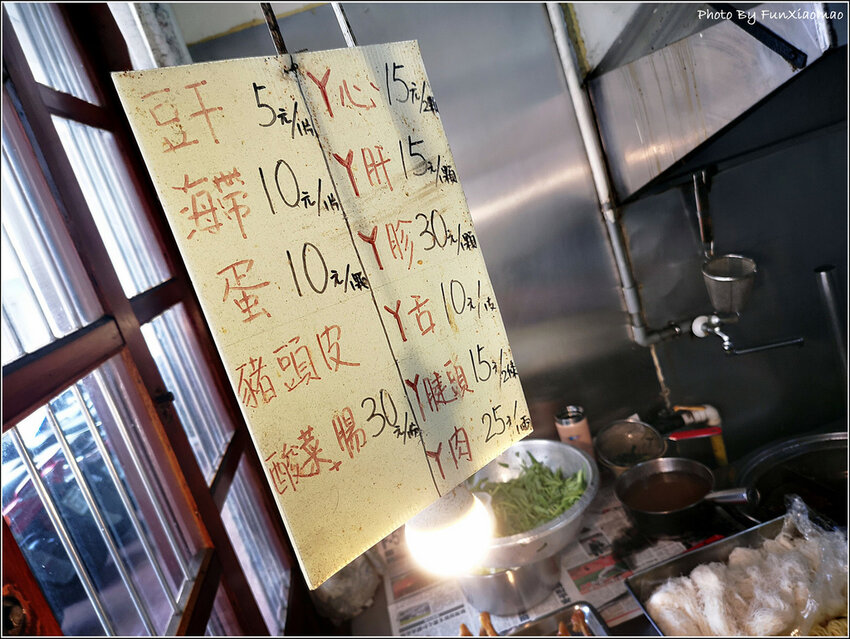 Photo By FunXiaomao
豆干 5元/1片
海帶 10元/1片
蛋 10元/1顆
豬頭皮
酸菜, 腸 30元/1份
丫心 15元/2顆
丫肝 15元/1顆
丫胗 30元/1顆
丫舌 10元/1支
丫腱頭 15元/2條
丫肉 25元/1兩